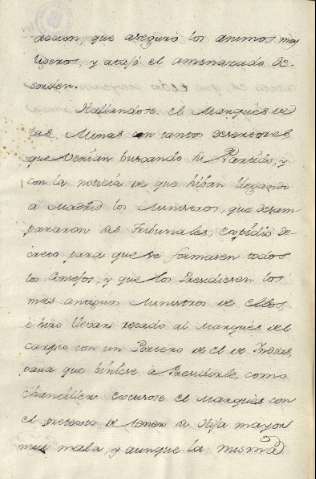 dacion, que aseguró los animos mas
ligeros, y atajó el amenazado de-
sorden.
Hallandose el Marques de
las Minas con tantos desertores
que venian buscando su Partido, y
con la noticia de que hiban llegando
a Madrid los Ministros, que desam
pararon los Tribunales, expidió de-
creto para que se formasen todos
los Consejos, y que los Presidiesen los
mas antiguos Ministros de ellos
è hizo llevar recado al Marques del
Carpio con un Portero de el de Indias,
para que viniese a Presidirle, como
Chanciller escusose el Marques con
el pretexto de tener su Hija mayor
muy mala, y aunque la misma